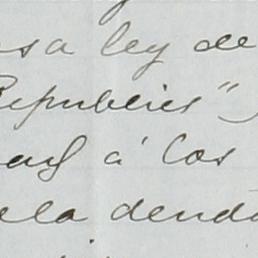 esa ley de
Republics")
á los
ela deuda